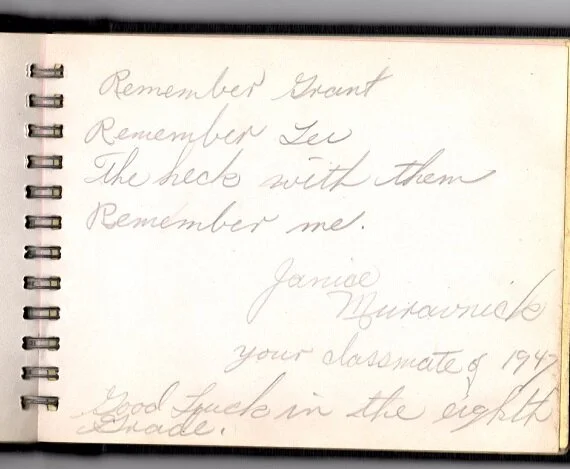 Remember Grant
Remember Lee
The heck with them
Remember me.
Janice
Muravnick
your classmate of 1947
Good Luck in the eighth
Grade.